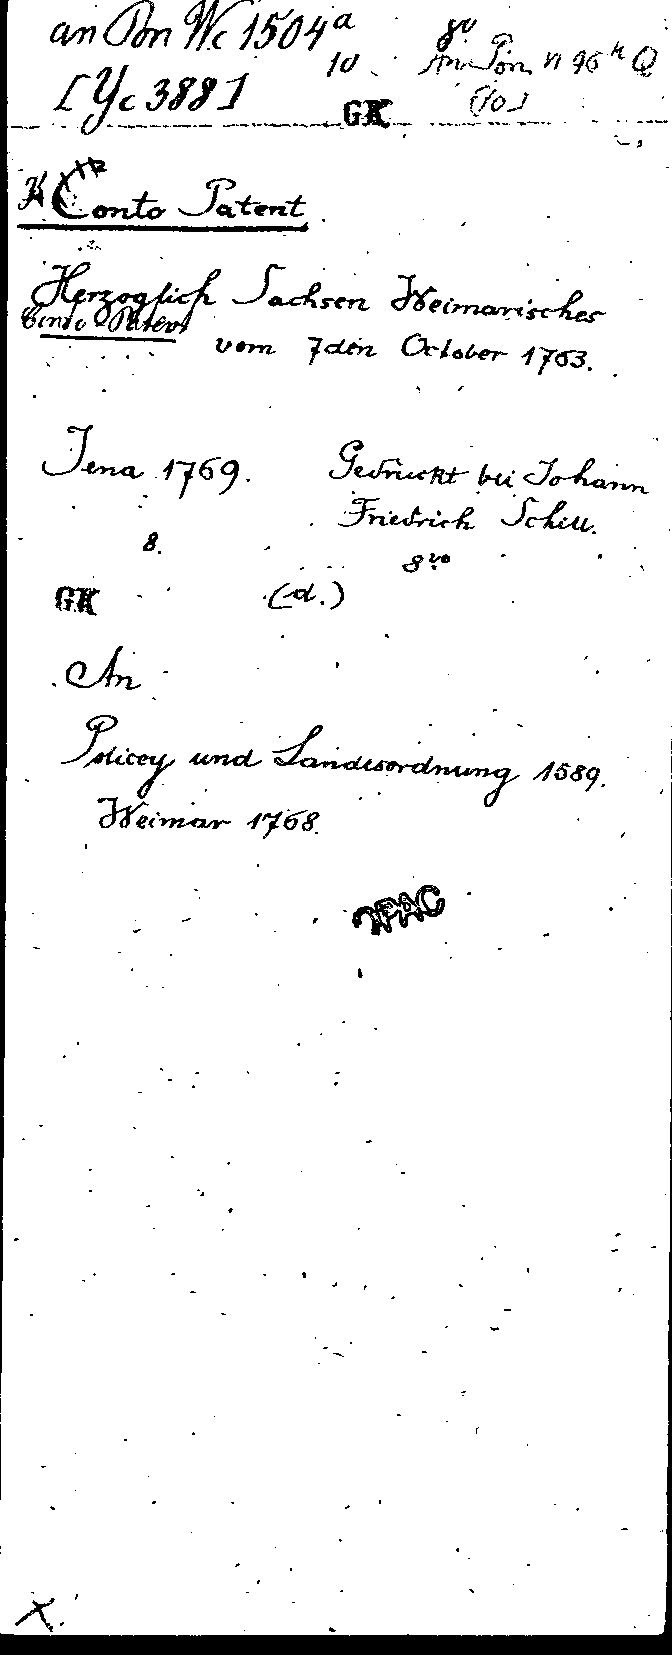 an Pon Wc 1504 a
8°
10 An Pon VI 96 h Q
[Yc 388]
(10)
GK
Conto Patent
Herzoglich Sachsen Weimarisches
Conto Patent
vom 7den October 1763.
Jena 1769. Gedruckt bei Johann
Friedrich Schill.
8.
8vo
GK (d.)
An
Policey und Landesordnung 1589.
Weimar 1768.
OPAC
X.